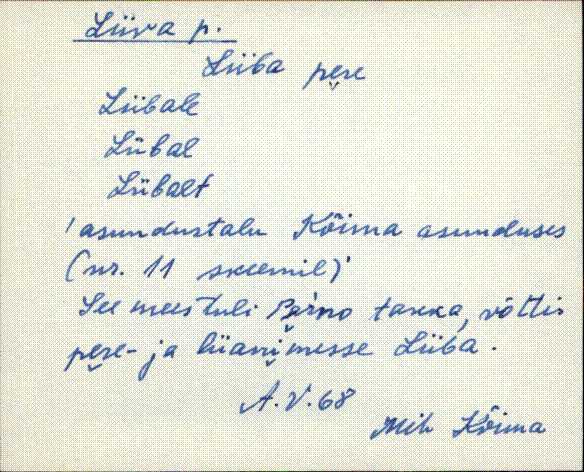 Liiva p.
Liiba pere
Liibale
Liibal
Liibalt
/asundustalu Kõima asunduses
(nr. 11 skeemil)
See mees tuli Pärno takka, võttis
pere- ja liianimesse Liiba.
A.V.68
Mih Kõima